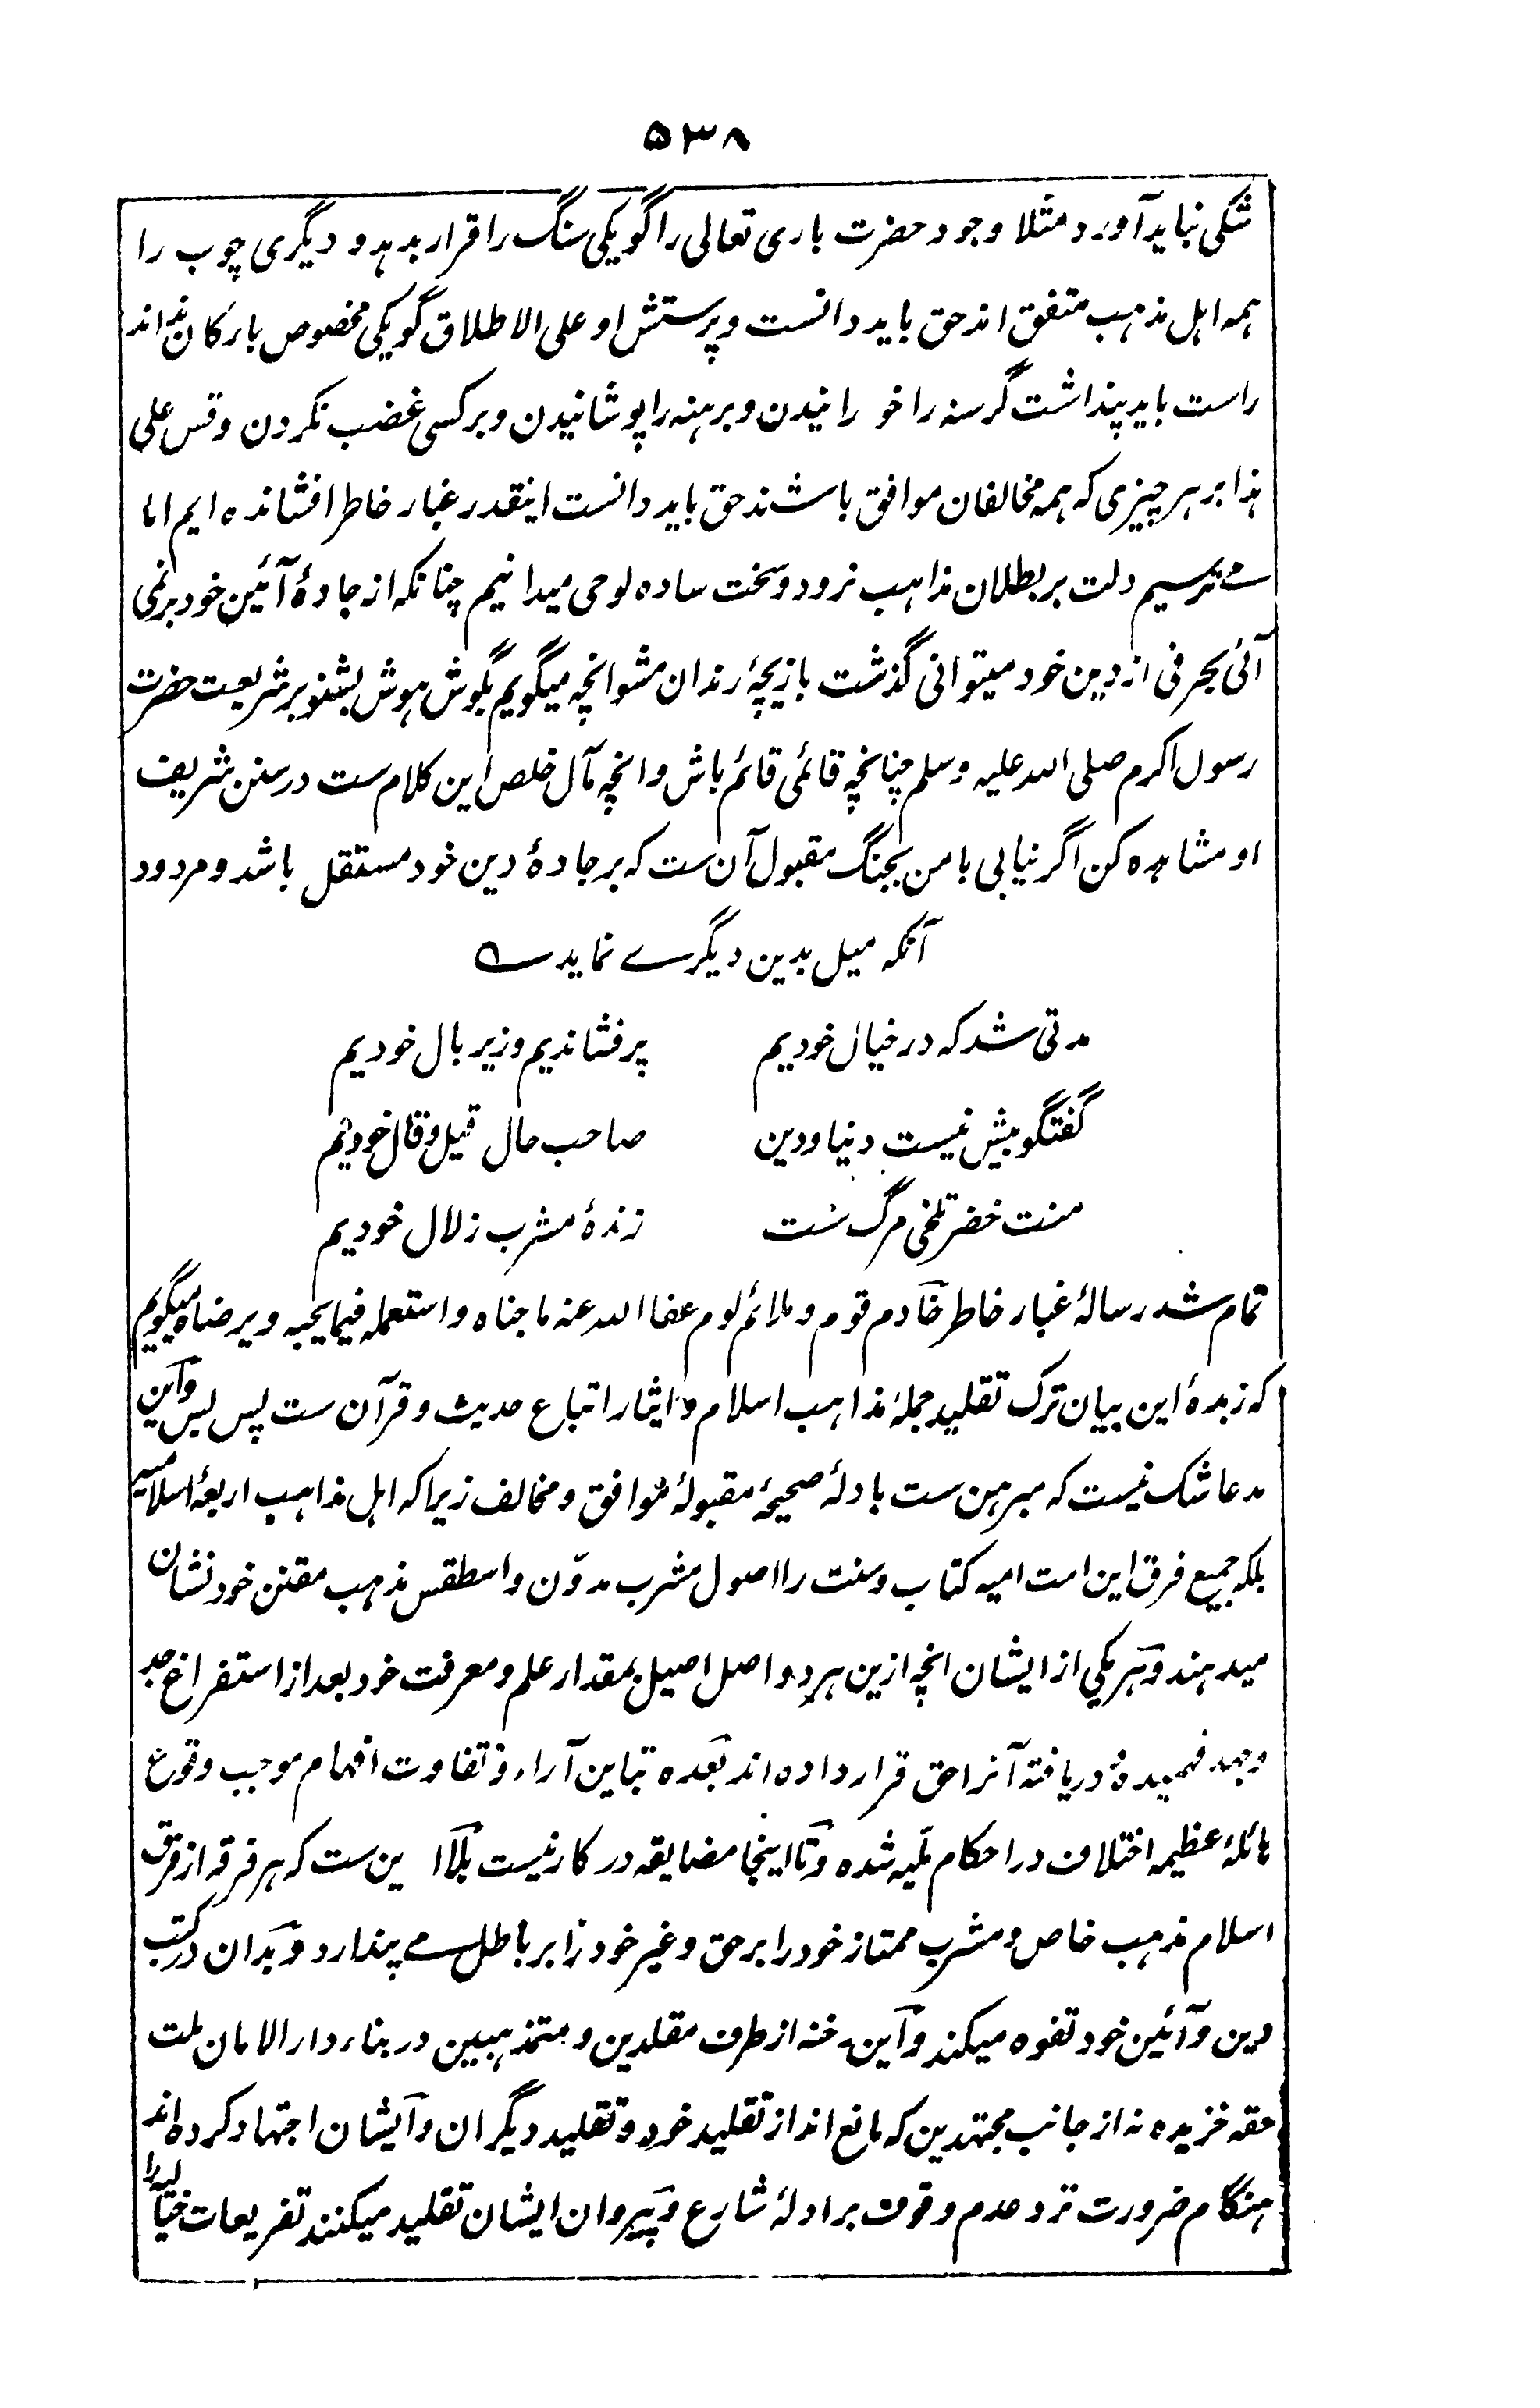 ۵۳۸
شکی نباید آورد مثلا وجود حضرت باری تعالی را گو یکی سنگ را قرار بدهد و دیگری چوب را
همه اهل مذهب متفق اند حق باید دانست و پرستش او علی الاطلاق گو یکی مخصوص بارکان نداند
راست باید پنداشت گرسنه را خورانیدن و برهنه را پوشانیدن و برکسی غضب نکردن وقس علی
هذا بر هر چیزی که همه مخالفان موافق باشند حق باید دانست اینقدر غبار خاطر افشانده ایم اما
مے ترسیم دلت بر بطلان مذاهب نرود و سخت ساده لوحی میدانیم چنانکه از جادهٔ آئین خود برنمی
آئی بحرفی از دین خود میتوانی گذشت بازیچهٔ رندان مشو انچه میگویم بگوش هوش بشنو بر شریعت حضرت
رسول اکرم صلی الله علیه وسلم چنانچه قائمی قائم باش و انچه مآل خلص این کلام ست در سنن شریف
او مشاهده کن اگر نیابی با من بجنگ مقبول آن ست که بر جادهٔ دین خود مستقل باشد و مردود
آنکه میل بدین دیگرے نماید ے
مدتی شد که در خیال خودیم پرفشاندیم و زیر بال خودیم
گفتگو بیش نیست دنیا و دین صاحب حال قیل و قال خودیم
منت خضر تلخی مرگ ست زندهٔ مشرب زلال خودیم
تمام شد رسالهٔ غبار خاطر خادم قوم و ملائم لوم عفا الله عنه ما جناه و استعمله فیما یحبه ویرضاه میگویم
که زبدهٔ این بیان ترک تقلید جملهٔ مذاهب اسلام و ایثار اتباع حدیث و قرآن ست پس بس و این
مدعا شک نیست که مبرهن ست بادلهٔ صحیحهٔ مقبولهٔ موافق و مخالف زیرا که اهل مذاهب اربعهٔ اسلامیه
بلکه جمیع فرق این امت امیه کتاب و سنت را اصول مشرب مدوّن و اسطقس مذهب مقنن خود نشان
میدهند و هر یکی از ایشان انچه ازین هر دو اصل اصیل بمقدار علم و معرفت خود بعد از استفراغ جد
وجهد فهمیده و دریافته آنرا حق قرار داده اند بعده تباین آراء و تفاوت افهام موجب وقوع
هائلهٔ عظیمه اختلاف در احکام ملیه شده و تا اینجا مضایقه در کار نیست بلا این ست که هر فرقه از فرق
اسلام مذهب خاص و مشرب ممتاز خود را بر حق و غیر خود را بر باطل مے پندارد و بدان در کتب
دین و آئین خود تفوه میکند و این رخنه از طرف مقلدین و متمذهبین در بناء دار الامان ملت
حقه خزیده نه از جانب مجتهدین که مانع اند از تقلید خود و تقلید دیگران و ایشان اجتهاد کرده اند
هنگام ضرورت نزد عدم وقوف بر ادلهٔ شارع و پیروان ایشان تقلید میکنند تفریعات